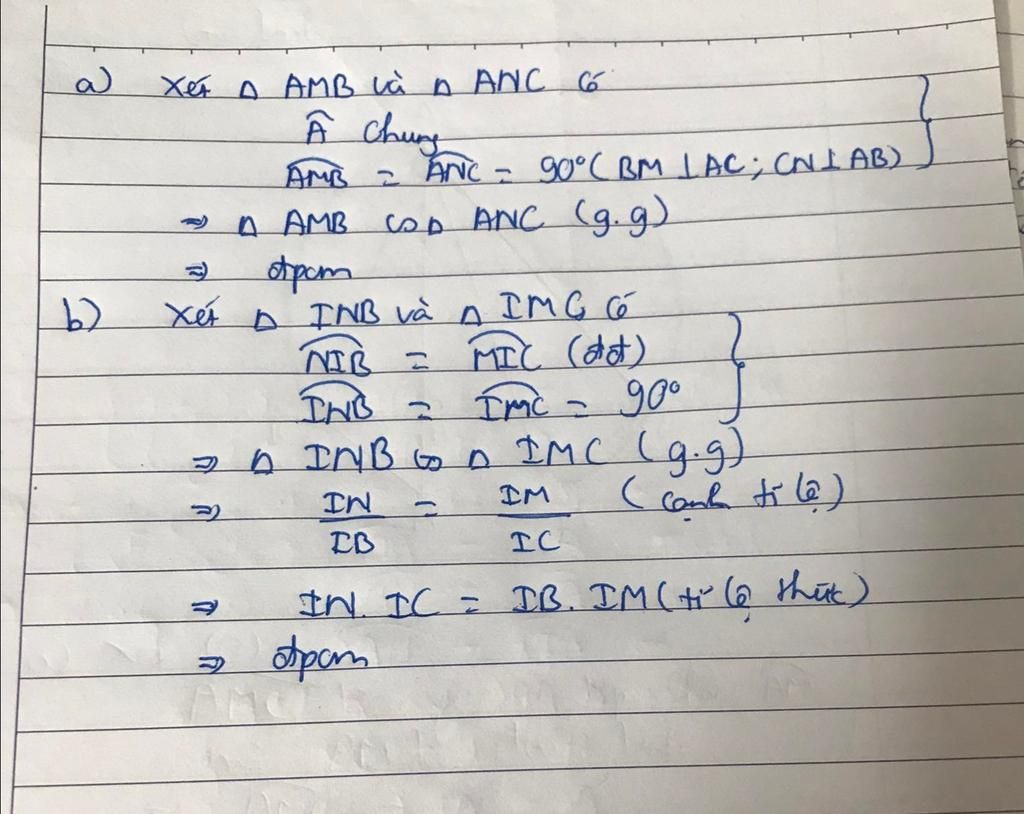 a) Xét Δ AMB và Δ ANC có
Â chung
∠AMB = ∠ANC = 90° (BM ⊥ AC; CN ⊥ AB)
⇒ Δ AMB ∽ Δ ANC (g.g)
⇒ đpcm
b) Xét Δ INB và Δ IMC có
∠NIB = ∠MIC (đđ)
∠INB = ∠IMC = 90°
⇒ Δ INB ∽ Δ IMC (g.g)
⇒ IN/IB = IM/IC (cạnh tỉ lệ)
⇒ IN. IC = IB. IM (tỉ lệ thức)
⇒ đpcm